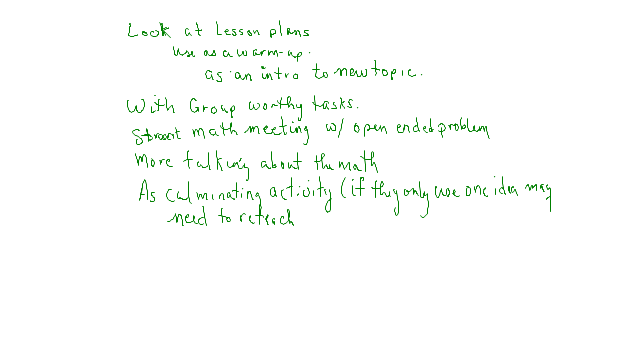 Look at Lesson plans
use as a warm-up.
as an intro to new topic.
With Group worthy tasks.
Start math meeting w/ open ended problem
More talking about the math
As culminating activity (if they only use one idea may
need to reteach